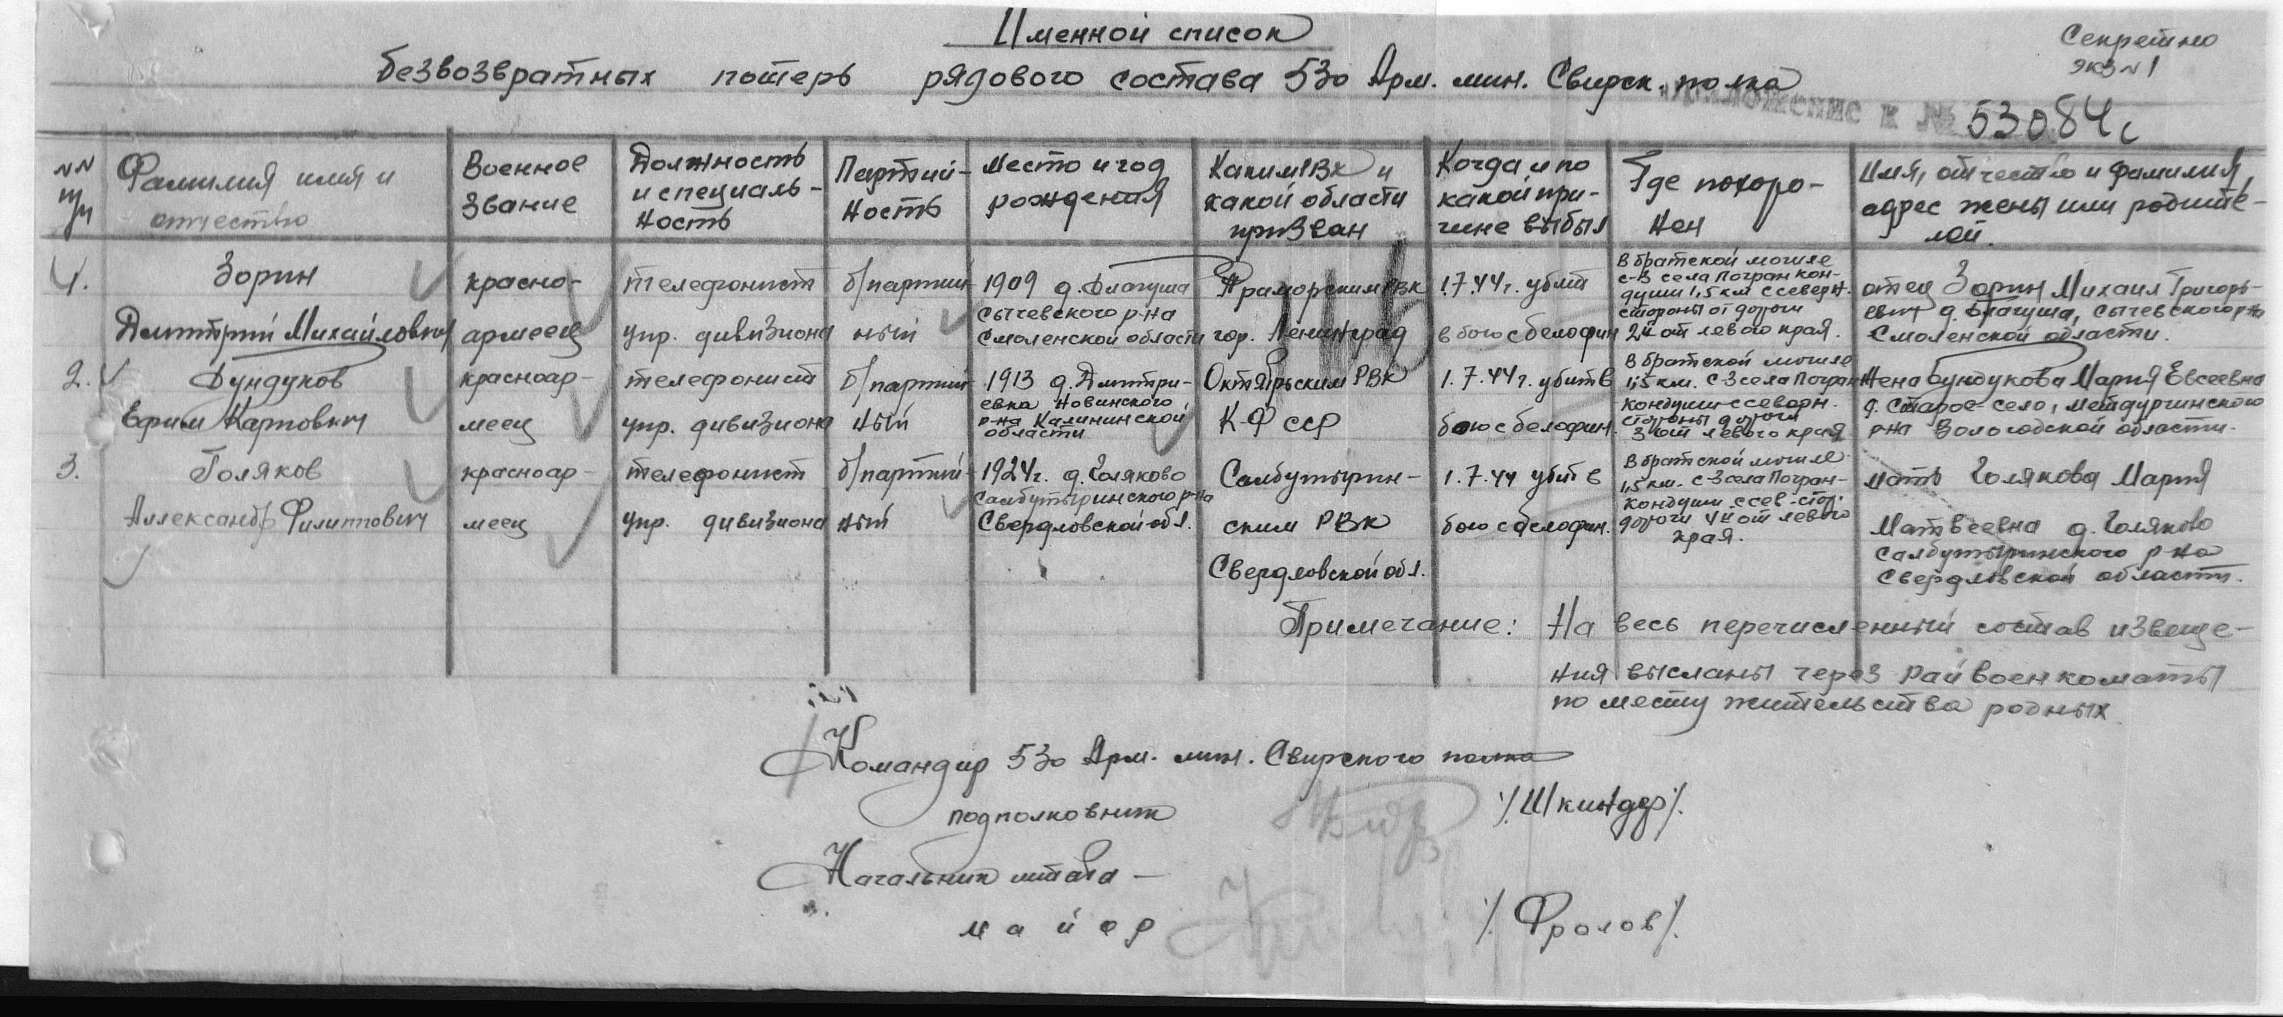 Именной список
безвозвратных потерь рядового состава 530 Арм. мин. Свирск. полка
Секретно
экз № 1
Приложение к № 53084с
NN п/п
Фамилия имя и отчество
Военное звание
Должность и специаль-ность
Партий-ность
Место и год рождения
Каким РВК и какой области призван
Когда и по какой при-чине выбыл
Где похоро-нен
Имя, отчество и фамилия, адрес жены или родите-лей.
1.
Зорин
Дмитрий Михайлович
красно-
армеец
телефонист
упр. дивизиона
б/партий-
ный
1909 д. Благуша
Сычевского р-на
Смоленской области
Приморским РВК
гор. Ленинград
1.7.44г. убит
в бою с белофин
В братской могиле
с-З села Погран кон-
души 1,5 км с северн.
стороны от дороги
2й от левого края.
отец Зорин Михаил Григорь-
евич д. Благуша, Сычевского р-на
Смоленской области.
2.
Бундуков
Ефим Карпович
красноар-
меец
телефонист
упр. дивизиона
б/партий-
ный
1913 д. Дмитри-
евка Новинского
р-на Калининской
области
Октябрьским РВК
К-Ф ССР
1.7.44г. убит в
бою с белофин.
В братской могиле
1,5 км. с-З села Погран
кондуши с северн.
стороны дороги
3 от левого края
Жена Бундукова Мария Евсеевна
д. Старое-село, Мяндургинского
р-на Вологодской области.
3.
Голяков
Александр Филиппович
красноар-
меец
телефонист
упр. дивизиона
б/партий-
ный
1924г. д. Голяково
Салбутыринского р-на
Свердловской обл.
Салбутырин-
ским РВК
Свердловской обл.
1.7.44 убит в
бою с белофин.
В братской могиле
1,5 км. с-З села Погран-
кондуши с сев. стор.
дороги 4й от левого
края.
мать Голякова Мария
Матвеевна д. Голяково
Салбутыринского р-на
Свердловской области.
Примечание: На весь перечисленный состав извеще-
ния высланы через Райвоенкоматы
по месту жительства родных.
Командир 530 Арм. мин. Свирского полка
подполковник /Шкиндер/.
Начальник штаба —
майор /Фролов/.